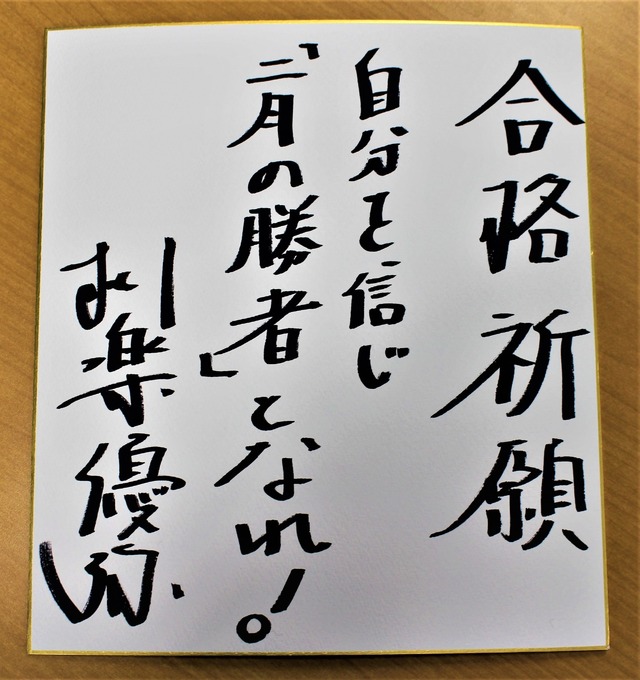 合格祈願
自分を信じ
「二月の勝者」となれ！
楽優